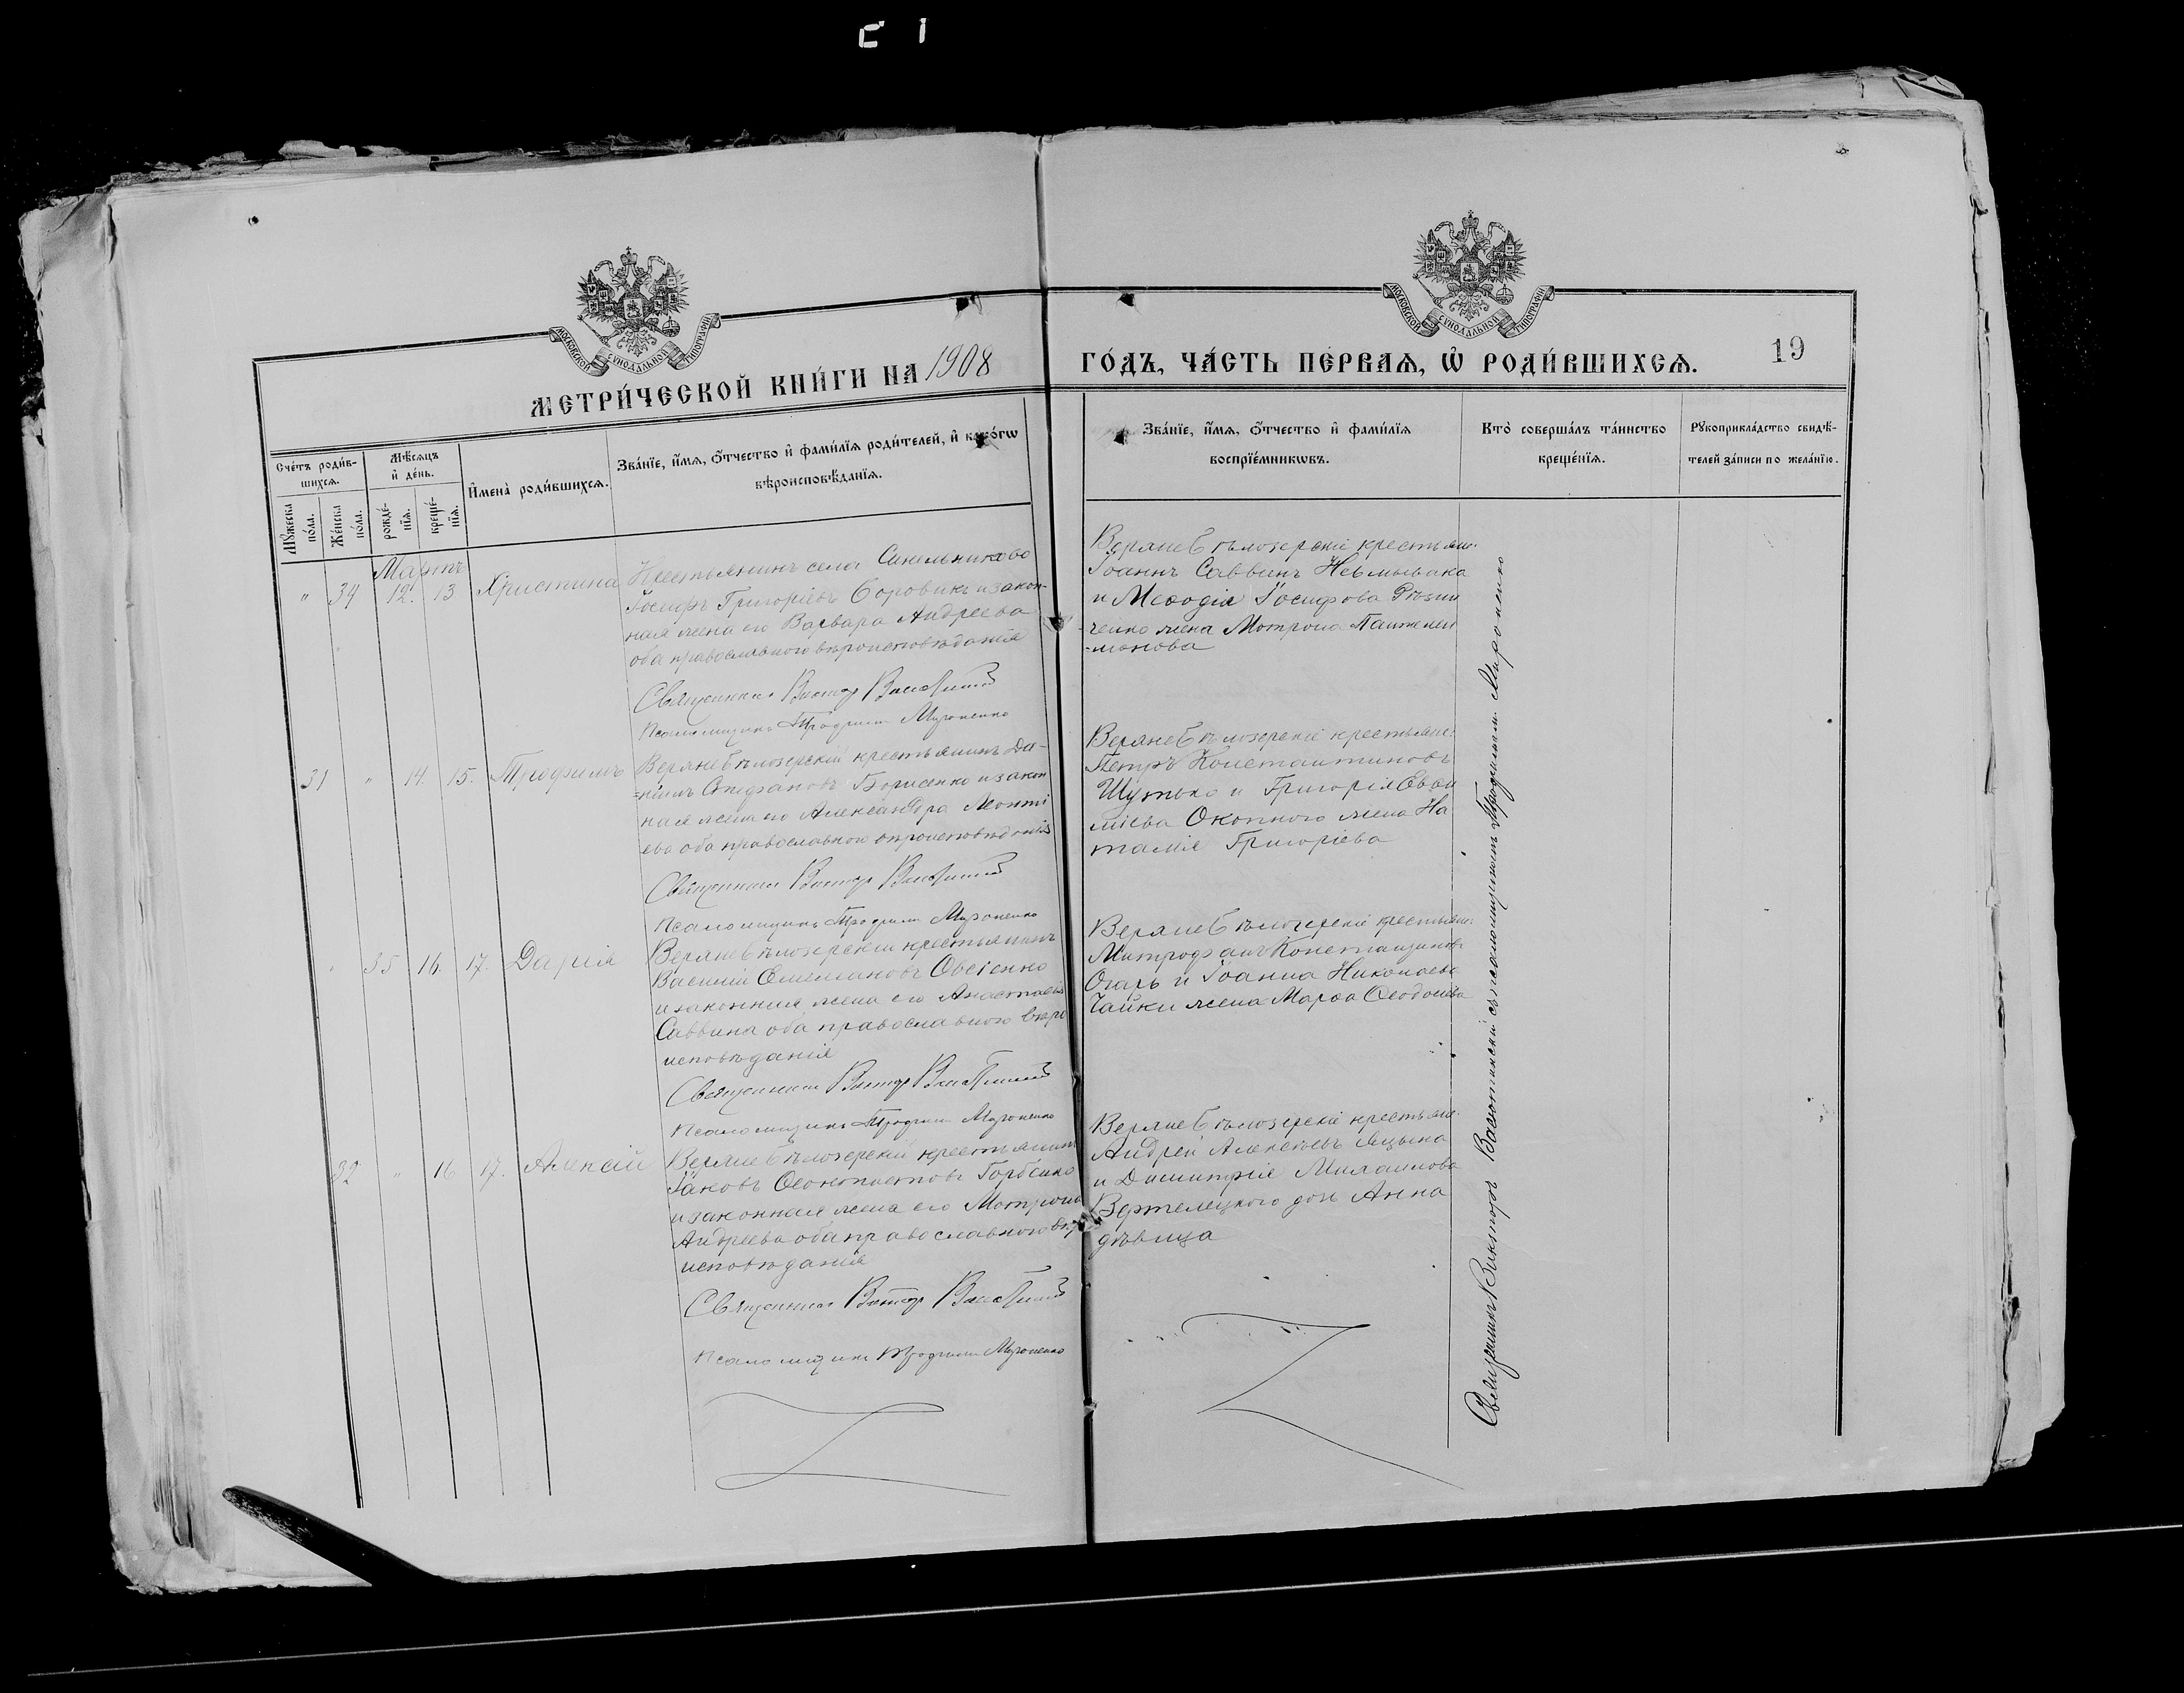 МОСКОВСКОЙ СѴНОДАЛЬНОЙ ТИПОГРАФІИ
МОСКОВСКОЙ СѴНОДАЛЬНОЙ ТИПОГРАФІИ
МЕТРИ́ЧЕСКОЙ КНИ́ГИ НА 1908
ГО́ДЪ, ЧА́СТЬ ПЕ́РВАѦ, Ѡ҆ РОДИ́ВШИХСѦ.
19
Сче́тъ роди́в-
шихсѧ.
Мꙋ́жеска по́ла.
Же́нска по́ла.
Мѣ́сѧцъ
и҆ де́нь.
рожде́-
нїѧ.
креще́-
нїѧ.
И҆мена̀ роди́вшихсѧ.
Зва́нїе, и҆́мѧ, ѻ҆́тчество и҆ фами́лїѧ роди́телей, и҆ како́гѡ
вѣроисповѣ́данїѧ.
Зва́нїе, и҆́мѧ, ѻ҆́тчество и҆ фами́лїѧ
воспрїе́мникѡвъ.
Кто̀ соверша́лъ та́инство
креще́нїѧ.
Рꙋкоприкла́дство свидѣ́-
телей за́писи по жела́нїю.
Мартъ
" 34 12. 13 Христина
Крестьянинъ села Синельниково
Іосифъ Григоріевъ Боровикъ и закон-
ная жена его Варвара Андреева
оба православного вѣроисповѣданія
Священникъ Викторъ
Псаломщикъ Трофимъ Мироненко
Верхнебѣлозерскіе крестьяне:
Іоаннъ Саввинъ
и Меѳодія Іосифова
жена Мотрона Пантелеи
-монова
31 " 14 15. Трофимъ
Верхнебѣлозерскій крестьянинъ Да-
-ніилъ Стефановъ Борисенко и закон
ная жена его Александра Леонті
ева оба православного вѣроисповѣданія
Священникъ Викторъ
Псаломщикъ Трофимъ Мироненко
Верхнебѣлозерскіе крестьяне:
Петръ Константиновъ
Шутько и Григорія Евѳи
міева Окопного жена На
талія Григоріева
" 35 16. 17. Дарія
Верхнебѣлозерскій крестьянинъ
Василій Емеліановъ Овсіенко
и законная жена его Анастасія
Саввина оба православного вѣро
исповѣданія
Священникъ Викторъ
Псаломщикъ Трофимъ Мироненко
Верхнебѣлозерскіе крестьяне:
Митрофанъ Константиновъ
Огарь и Іоанна Николаева
Чайки жена Марѳа Ѳеодосіева
32 " 16 17. Алексій
Верхнебѣлозерскій крестьянинъ
Іаковъ Ѳеоктистовъ Горбенко
и законная жена его Мотрона
Андреева оба православного вѣро
исповѣданія
Священникъ Викторъ
Псаломщикъ Трофимъ Мироненко
Верхнебѣлозерскіе крестьяне:
Андрей Алексіевъ Яцына
и Димитрія Михаилова
Вертелецкого дочь Анна
дѣвица
Священникъ Викторъ съ псаломщикомъ Трофимом Мироненко